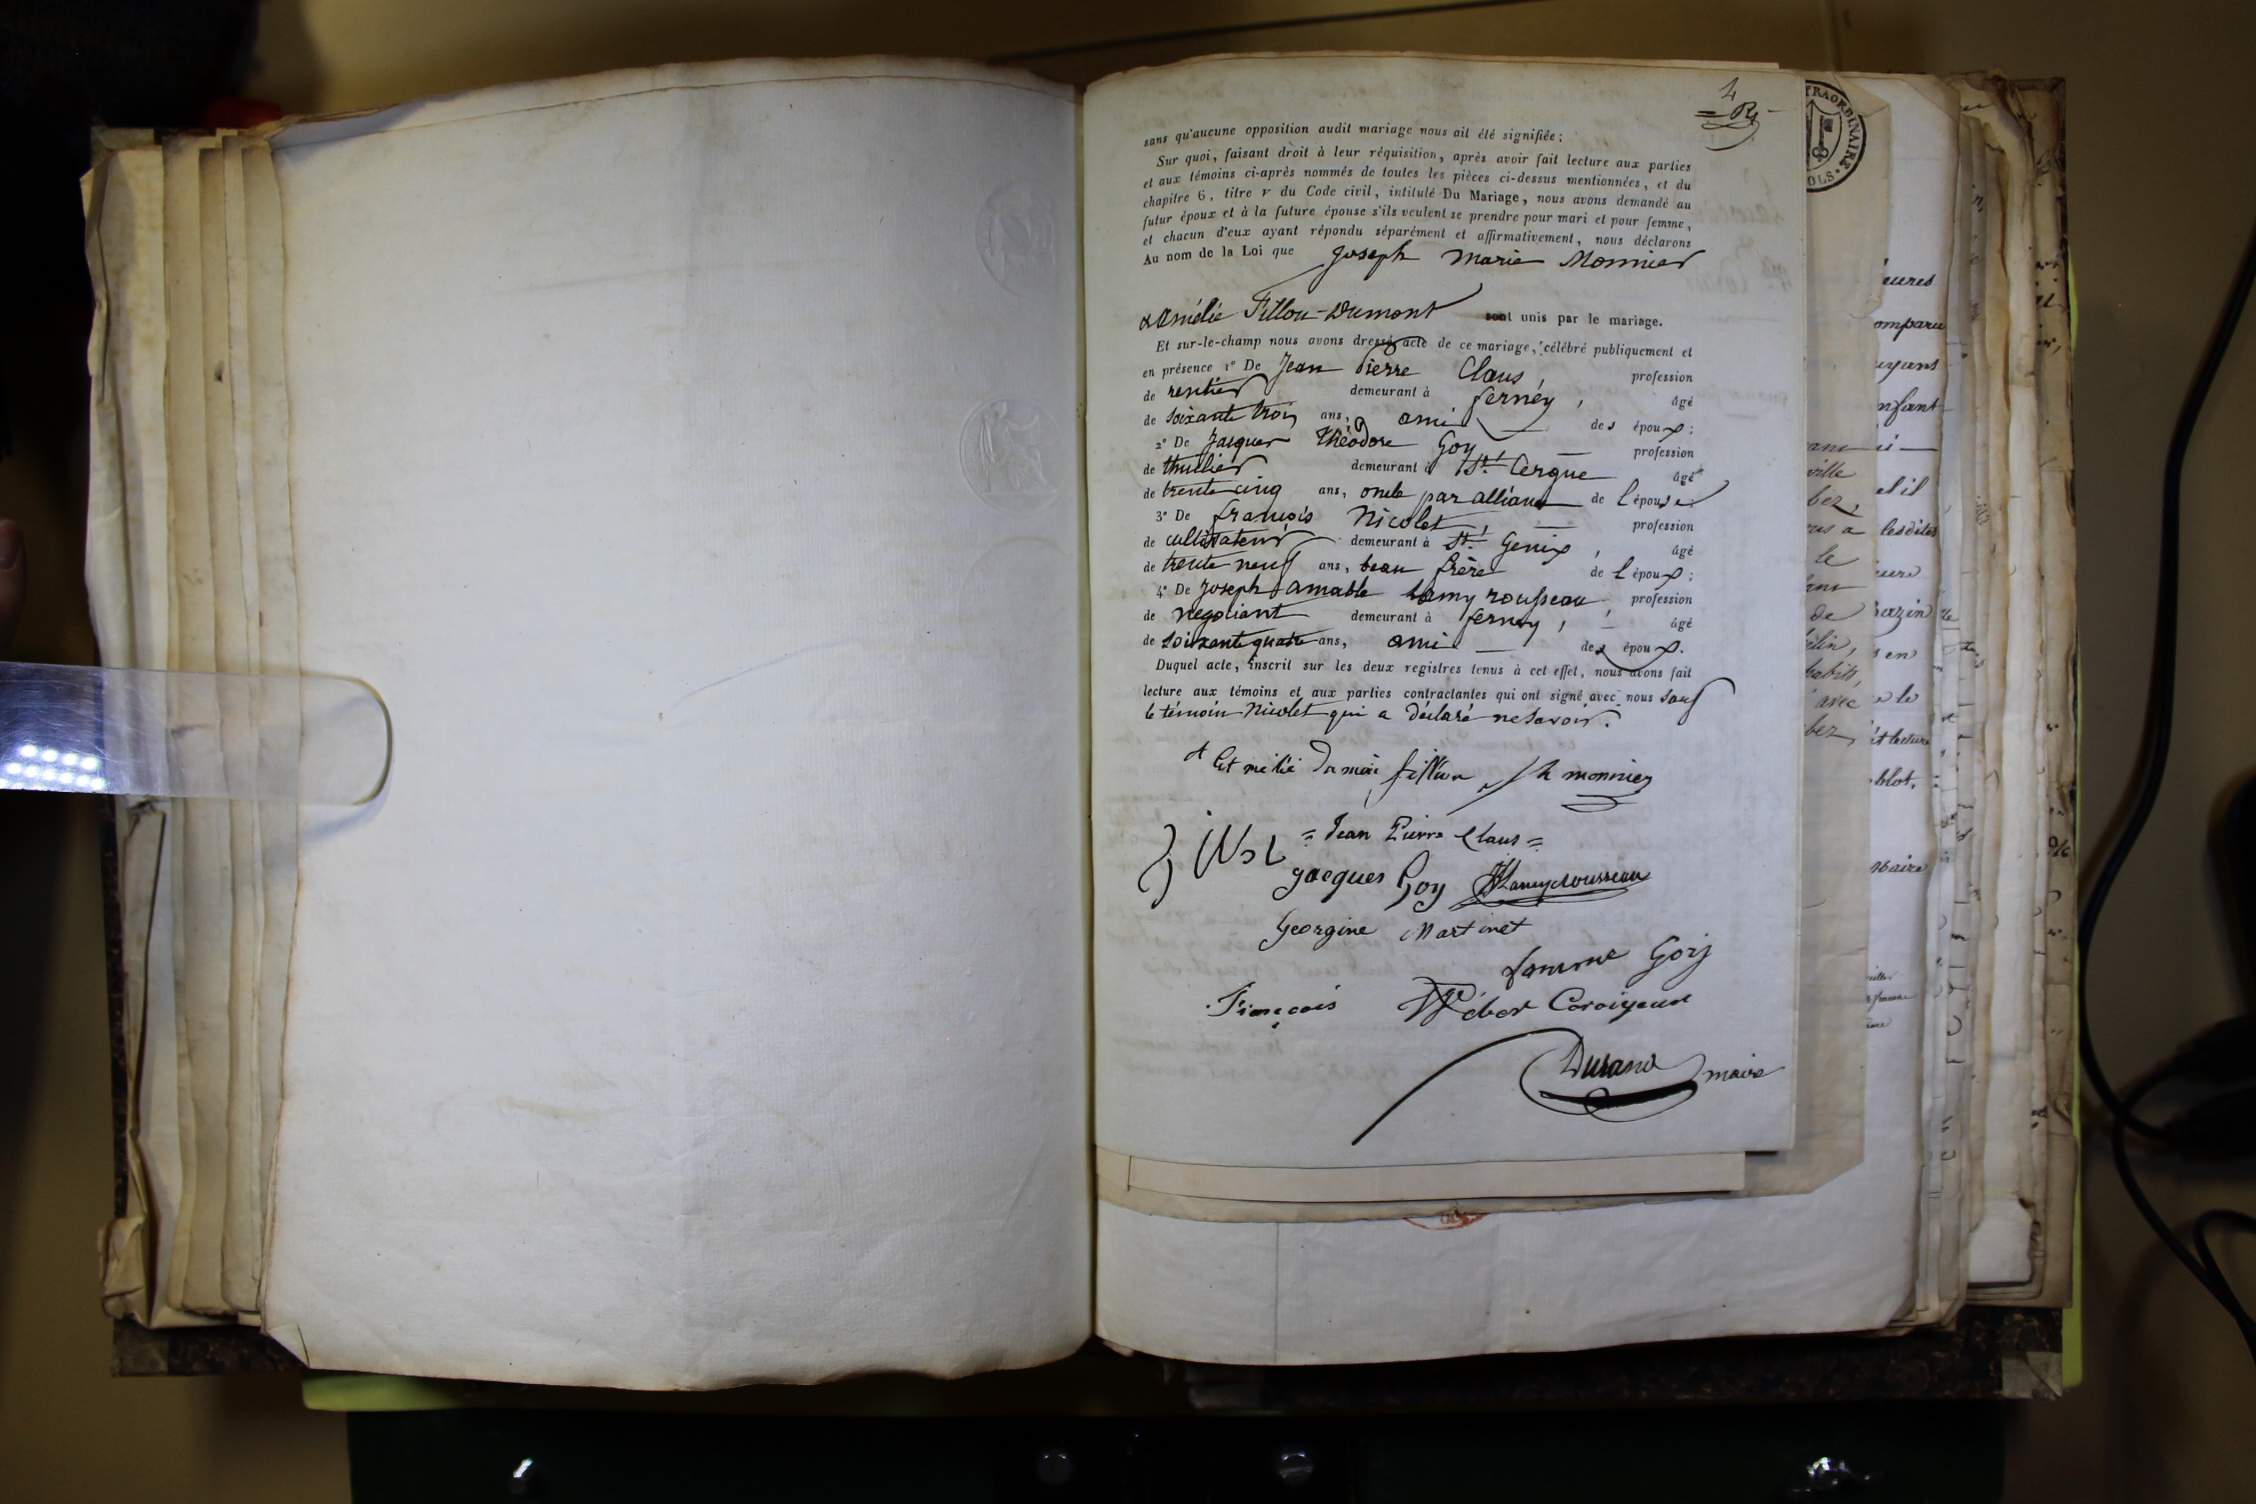 4
sans qu'aucune opposition audit mariage nous ait été signifiée;
Sur quoi, faisant droit à leur réquisition, après avoir fait lecture aux parties
et aux témoins ci-après nommés de toutes les pièces ci-dessus mentionnées, et du
chapitre 6, titre v du Code civil, intitulé Du Mariage, nous avons demandé au
futur époux et à la future épouse s'ils veulent se prendre pour mari et pour femme,
et chacun d'eux ayant répondu séparément et affirmativement, nous déclarons
Au nom de la Loi que Joseph Marie Monnier
& Amélie Fillou-Dumont sont unis par le mariage.
Et sur-le-champ nous avons dressé acte de ce mariage, célébré publiquement et
en présence 1° De Jean Pierre Claus, profession
de rentier demeurant à Ferney, âgé
de soixante trois ans, ami des époux;
2° De Jacques Théodore Goy profession
de thuilier demeurant à St. Cergue âgé
de trente cinq ans, oncle par alliance de l'épouse;
3° De François Nicolet profession
de cultivateur demeurant à St. Genix, âgé
de trente neuf ans, beau frère de l'époux;
4° De Joseph Amable Lamy rousseau profession
de negotiant demeurant à Ferney, âgé
de soixante quatre ans, ami des époux.
Duquel acte, inscrit sur les deux registres tenus à cet effet, nous avons fait
lecture aux témoins et aux parties contractantes qui ont signé avec nous sauf
le témoin Nicolet qui a déclaré ne savoir.
fillion monnier
Jean Pierre Claus
Jacques Goy Lamyrousseau
Georgine Martinet
Goy
François Wéber
Durand maire
TRAORDINAIRE
OLS